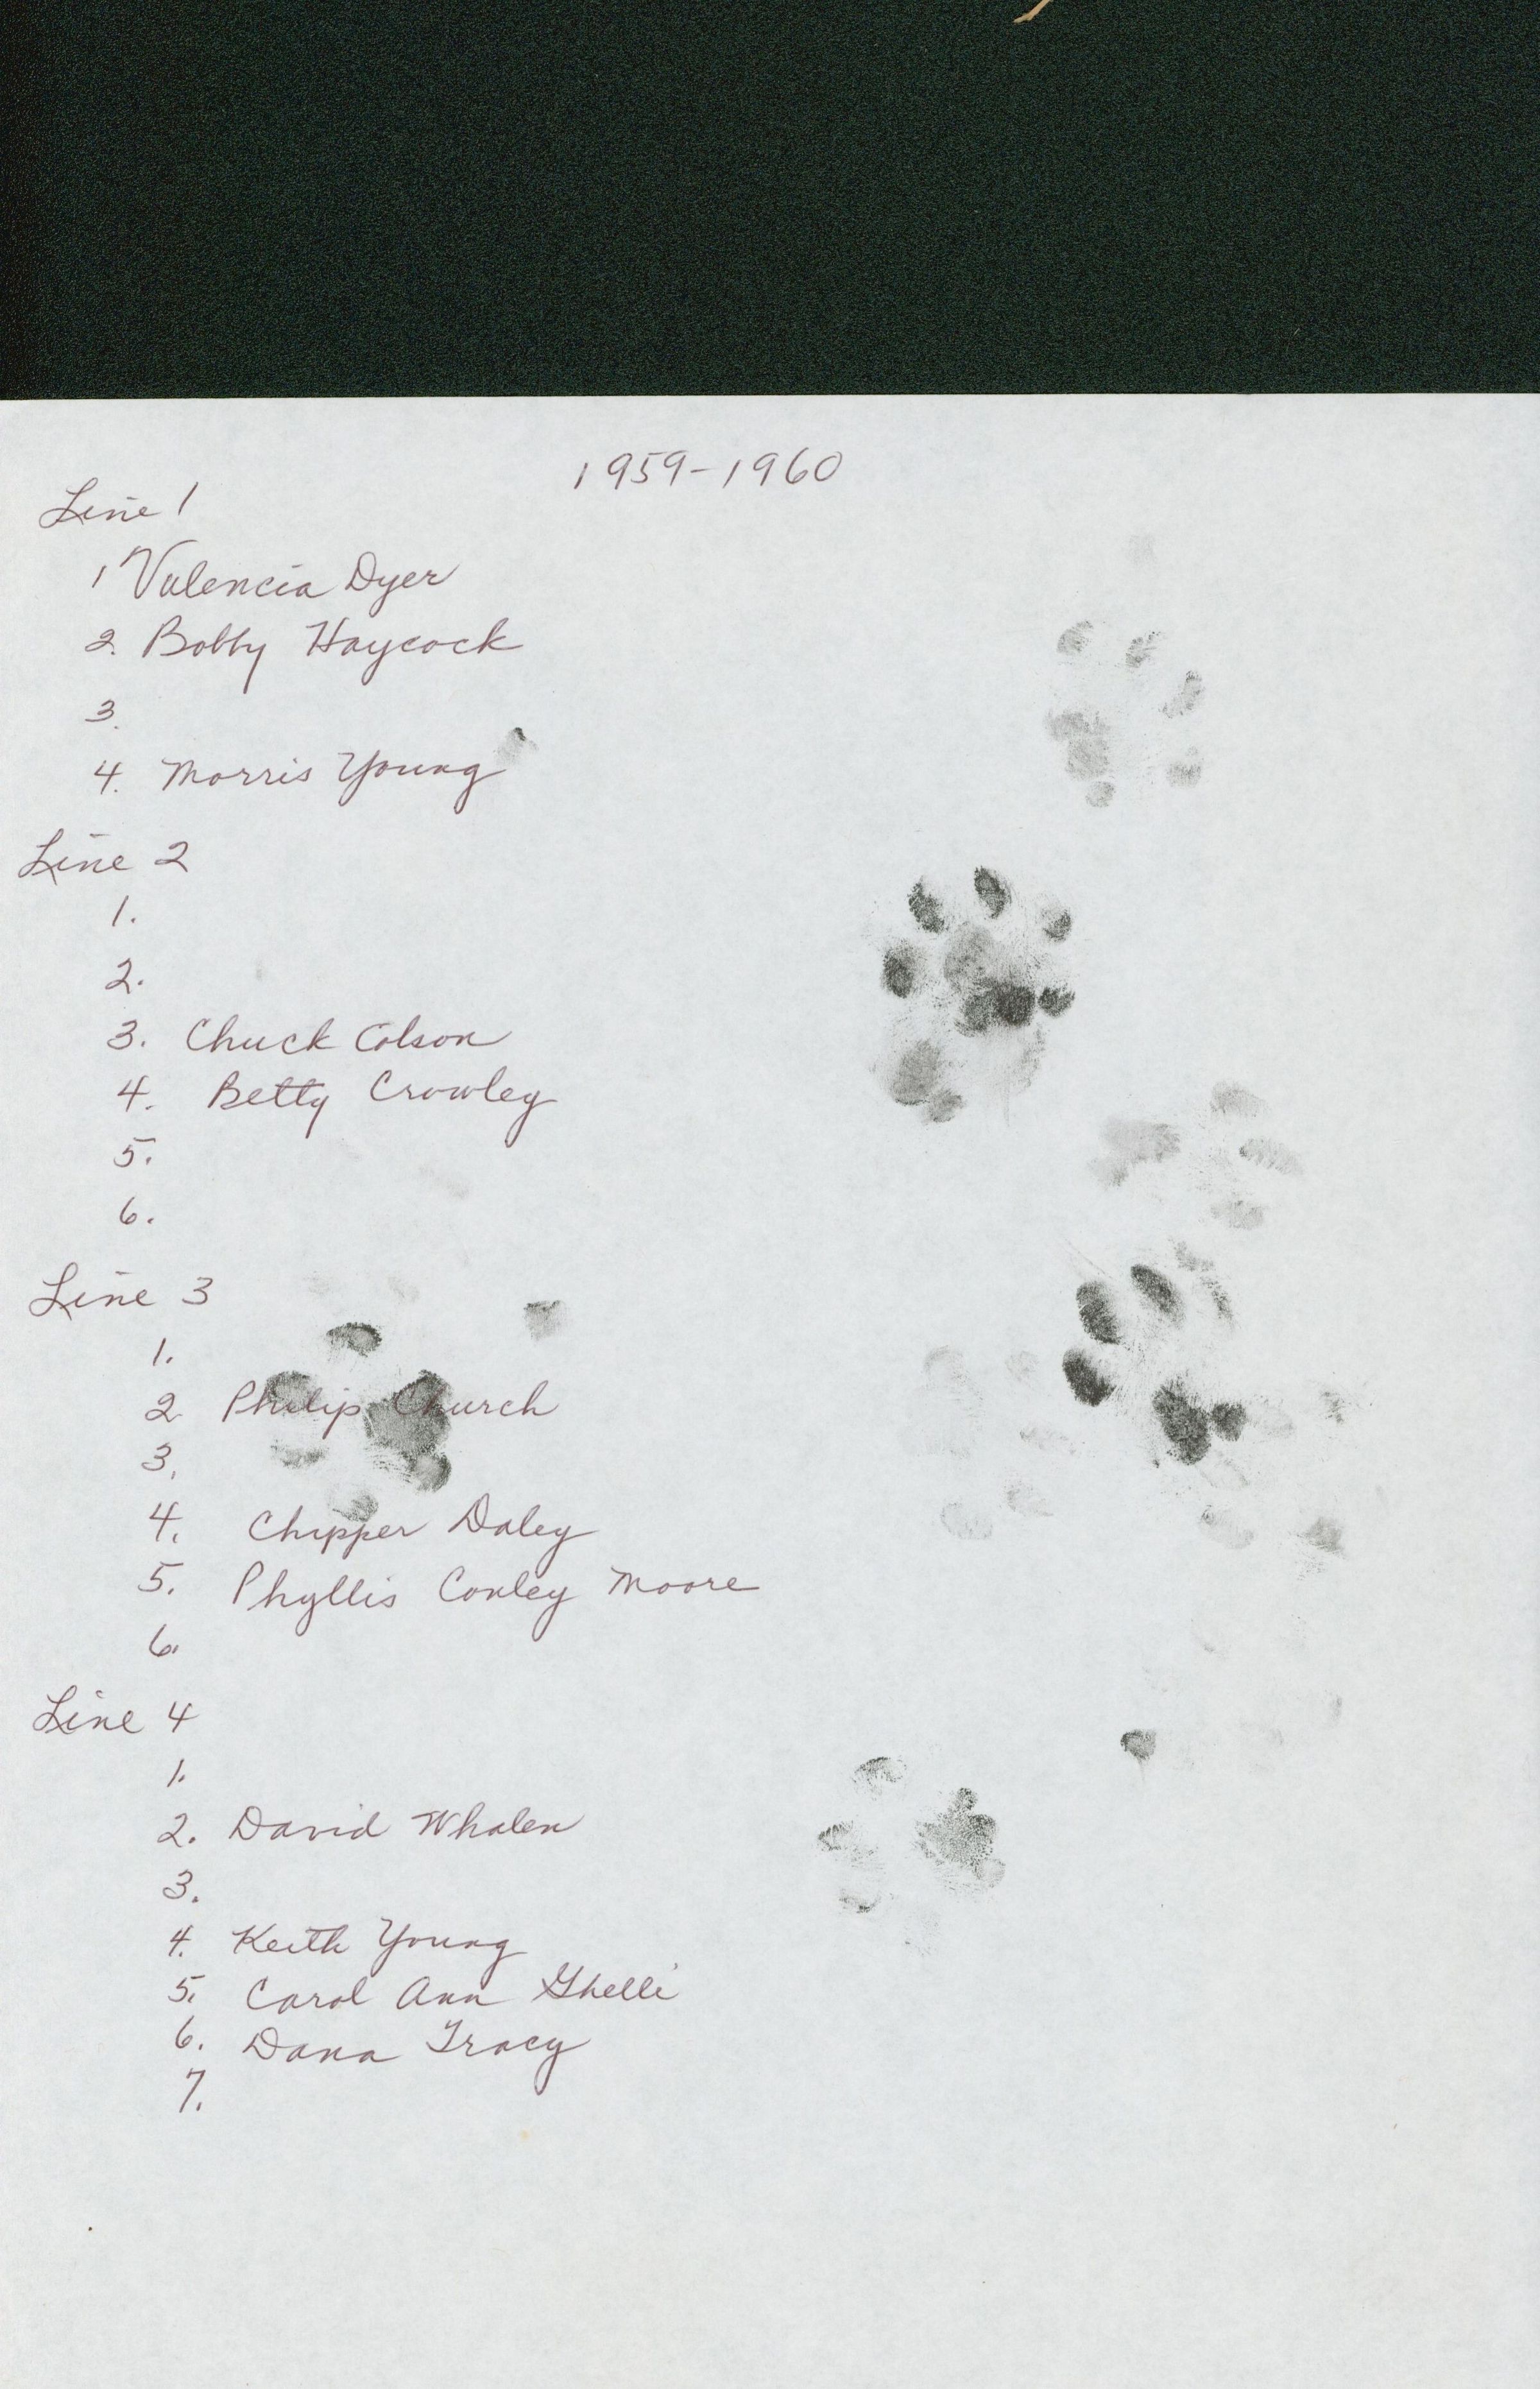 1959-1960
Line 1
1 Valencia Dyer
2. Bobby Haycock
3.
4. Morris Young
Line 2
1.
2.
3. Chuck Colson
4. Betty Crowley
5.
6.
Line 3
1.
2 Philip Church
3.
4. Chipper Daley
5. Phyllis Conley Moore
6.
Line 4
1.
2. David Whalen
3.
4. Keith Young
5. Carol Ann Ghelli
6. Dana Tracy
7.